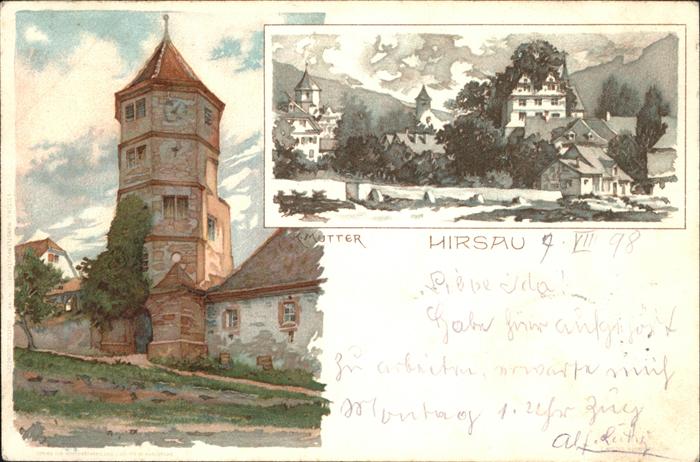 K. MUTTER
HIRSAU 9. VIII 98
Liebe Ida!
Habe hier aufgehört
zu arbeiten, erwarte mich
Montag 1. Uhr Zug
Alf.